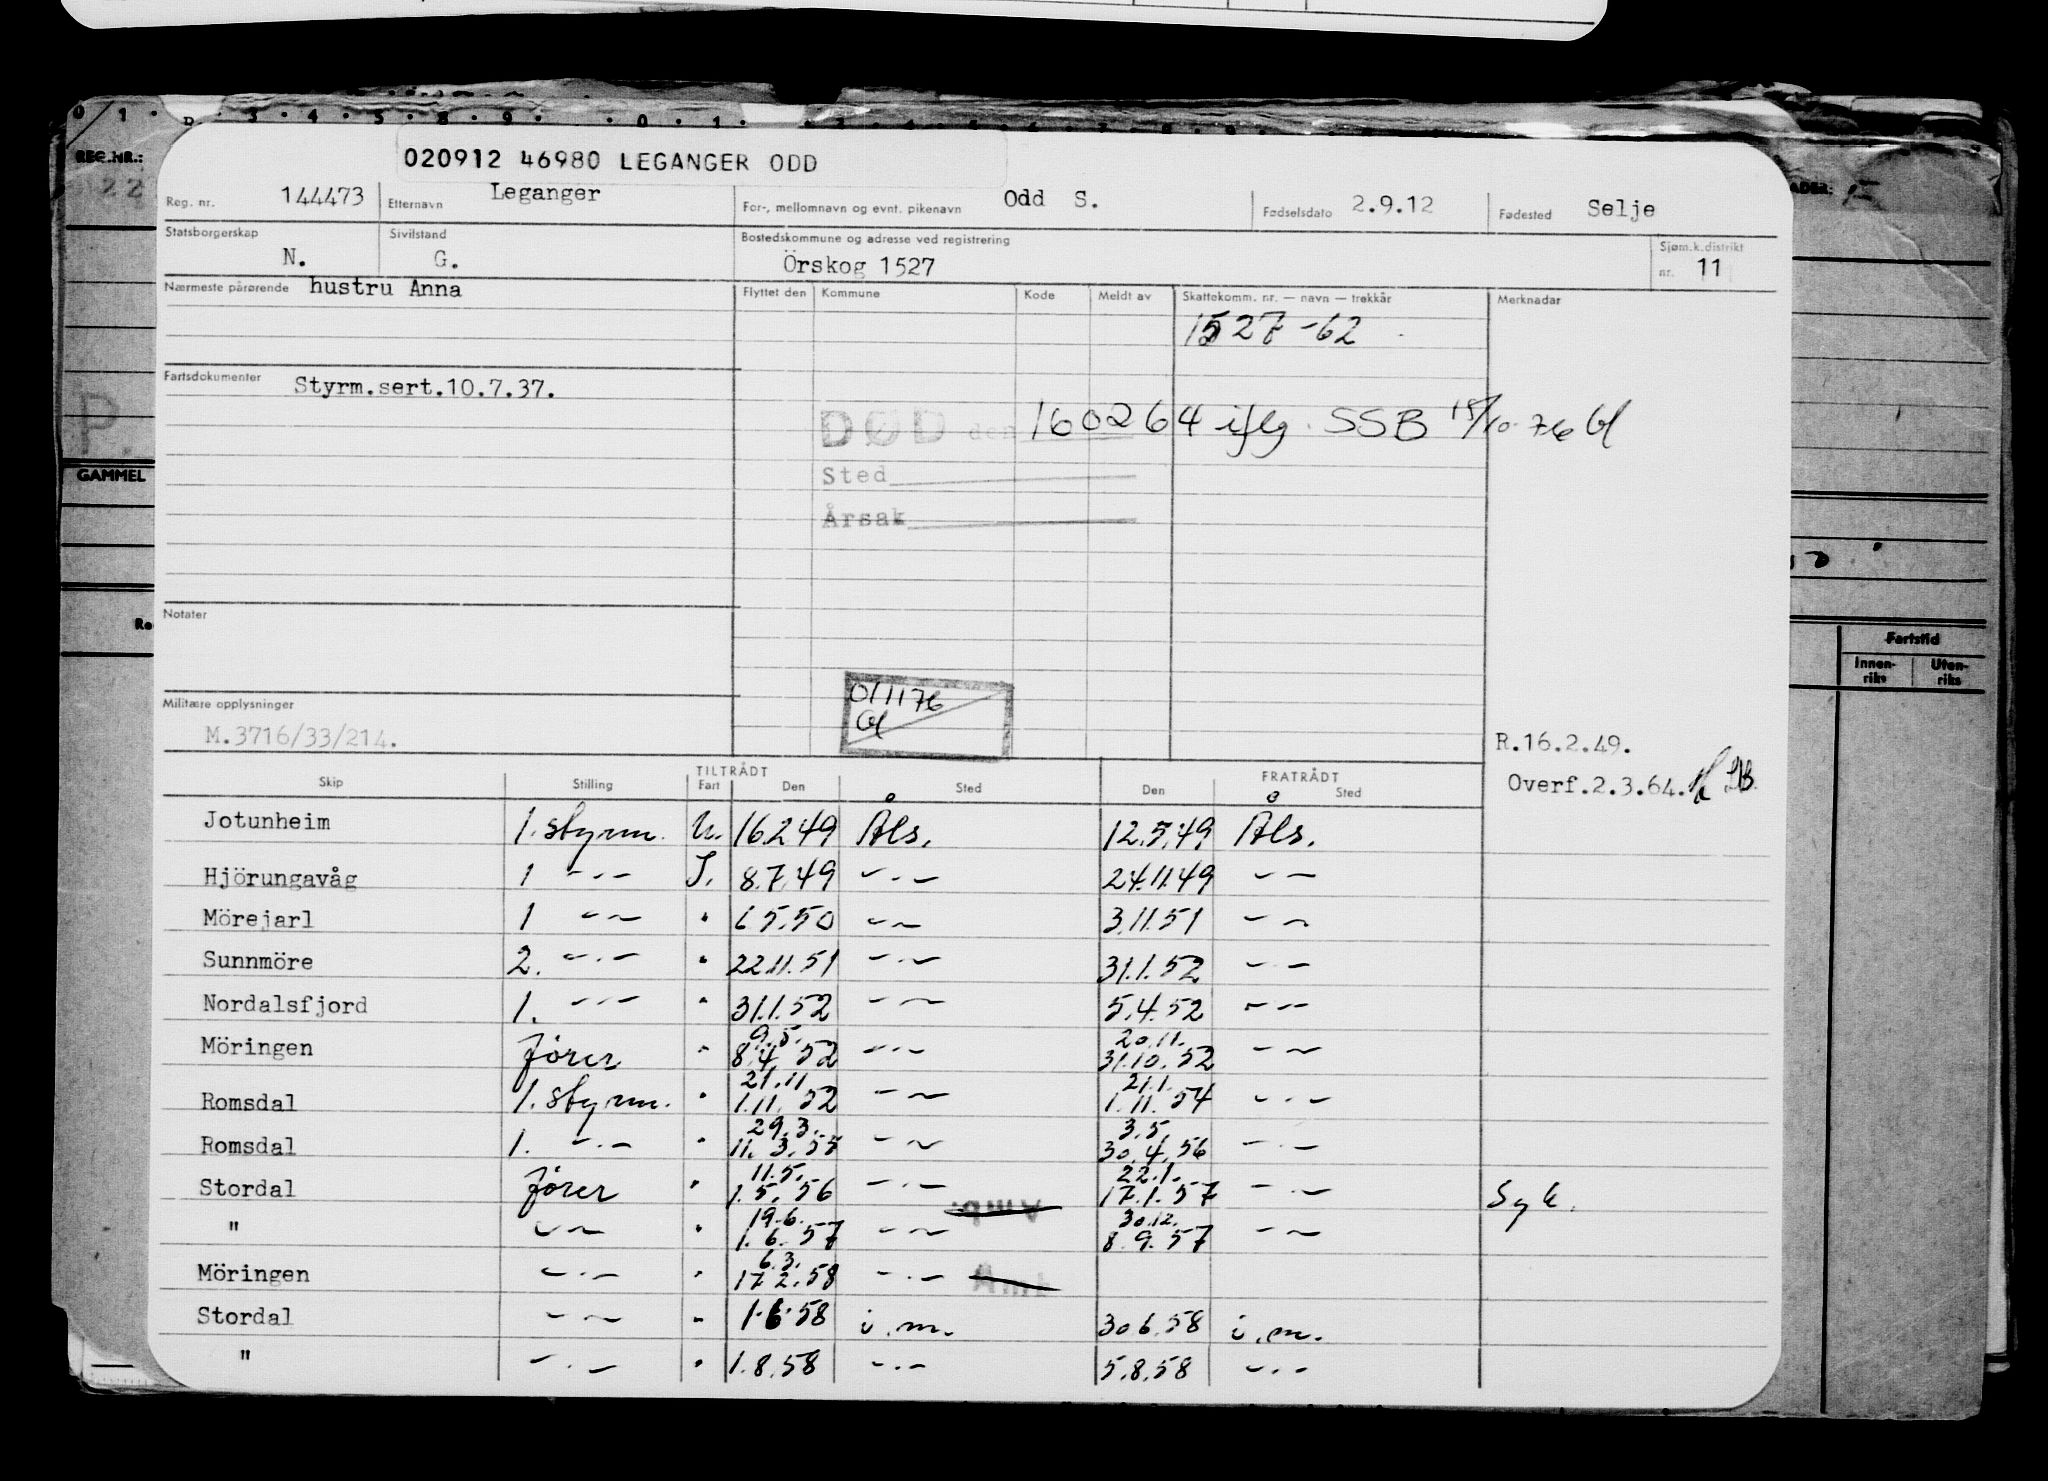 0 1 . 3 . 4 . 5 . 8 . 9 . . 0 . 1 .
REG.NR.:
22
020912 46980 LEGANGER ODD
Reg. nr. 144473 Etternavn Leganger For-, mellomnavn og evnt. pikenavn Odd S. Fødselsdato 2.9.12 Fødested Selje
Statsborgerskap N. Sivilstand G. Bostedskommune og adresse ved registrering Örskog 1527 Sjøm.k.distrikt nr. 11
Nærmeste pårørende hustru Anna Flyttet den Kommune Kode Meldt av Skattekomm. nr. — navn — trekkår Merknadar
1527-62
Fartsdokumenter Styrm.sert.10.7.37.
DØD den 160264 iflg. SSB 15/10-76 Gl
Sted
Årsak
P.
GAMMEL
Notater
011176
Gl
Militære opplysninger
M.3716/33/214.
R.16.2.49.
Overf.2.3.64.
Fartstid
Innen-riks Uten-riks
TILTRÅDT FRATRÅDT
Skip Stilling Fart Den Sted Den Sted
Jotunheim 1. styrm. U. 16.2.49 Åls. 12.5.49 Åls.
Hjörungavåg 1 -"- I. 8.7.49 -"- 24.11.49 -"-
Mörejarl 1 -"- " 6 5.50 -"- 3.11.51 -"-
Sunnmöre 2. -"- " 22.11.51 -"- 31.1.52 -"-
Nordalsfjord 1. -"- " 31.1.52 -"- 5.4.52 -"-
9.5. 20.11.
Möringen förer " 8.4 52 -"- 31.10.52 -"-
21.11 21.1.
Romsdal 1. styrm. " 1.11.52 -"- 1.11.54 -"-
29.3. 3.5
Romsdal 1. -"- " 11.3.55 -"- 30.4.56 -"-
11.5. 22.1.
Stordal förer " 1.5.56 -"- 17.1.57 -"- Syk.
Amb.
19.6. 30.12.
" -"- " 1.6.57 -"- 8.9.57 -"-
6.3.
Möringen -"- " 17.2.58 -"-
Stordal -"- " 1.6.58 i.m. 30.6.58 i.m.
" -"- " 1.8.58 -"- 5.8.58 -"-